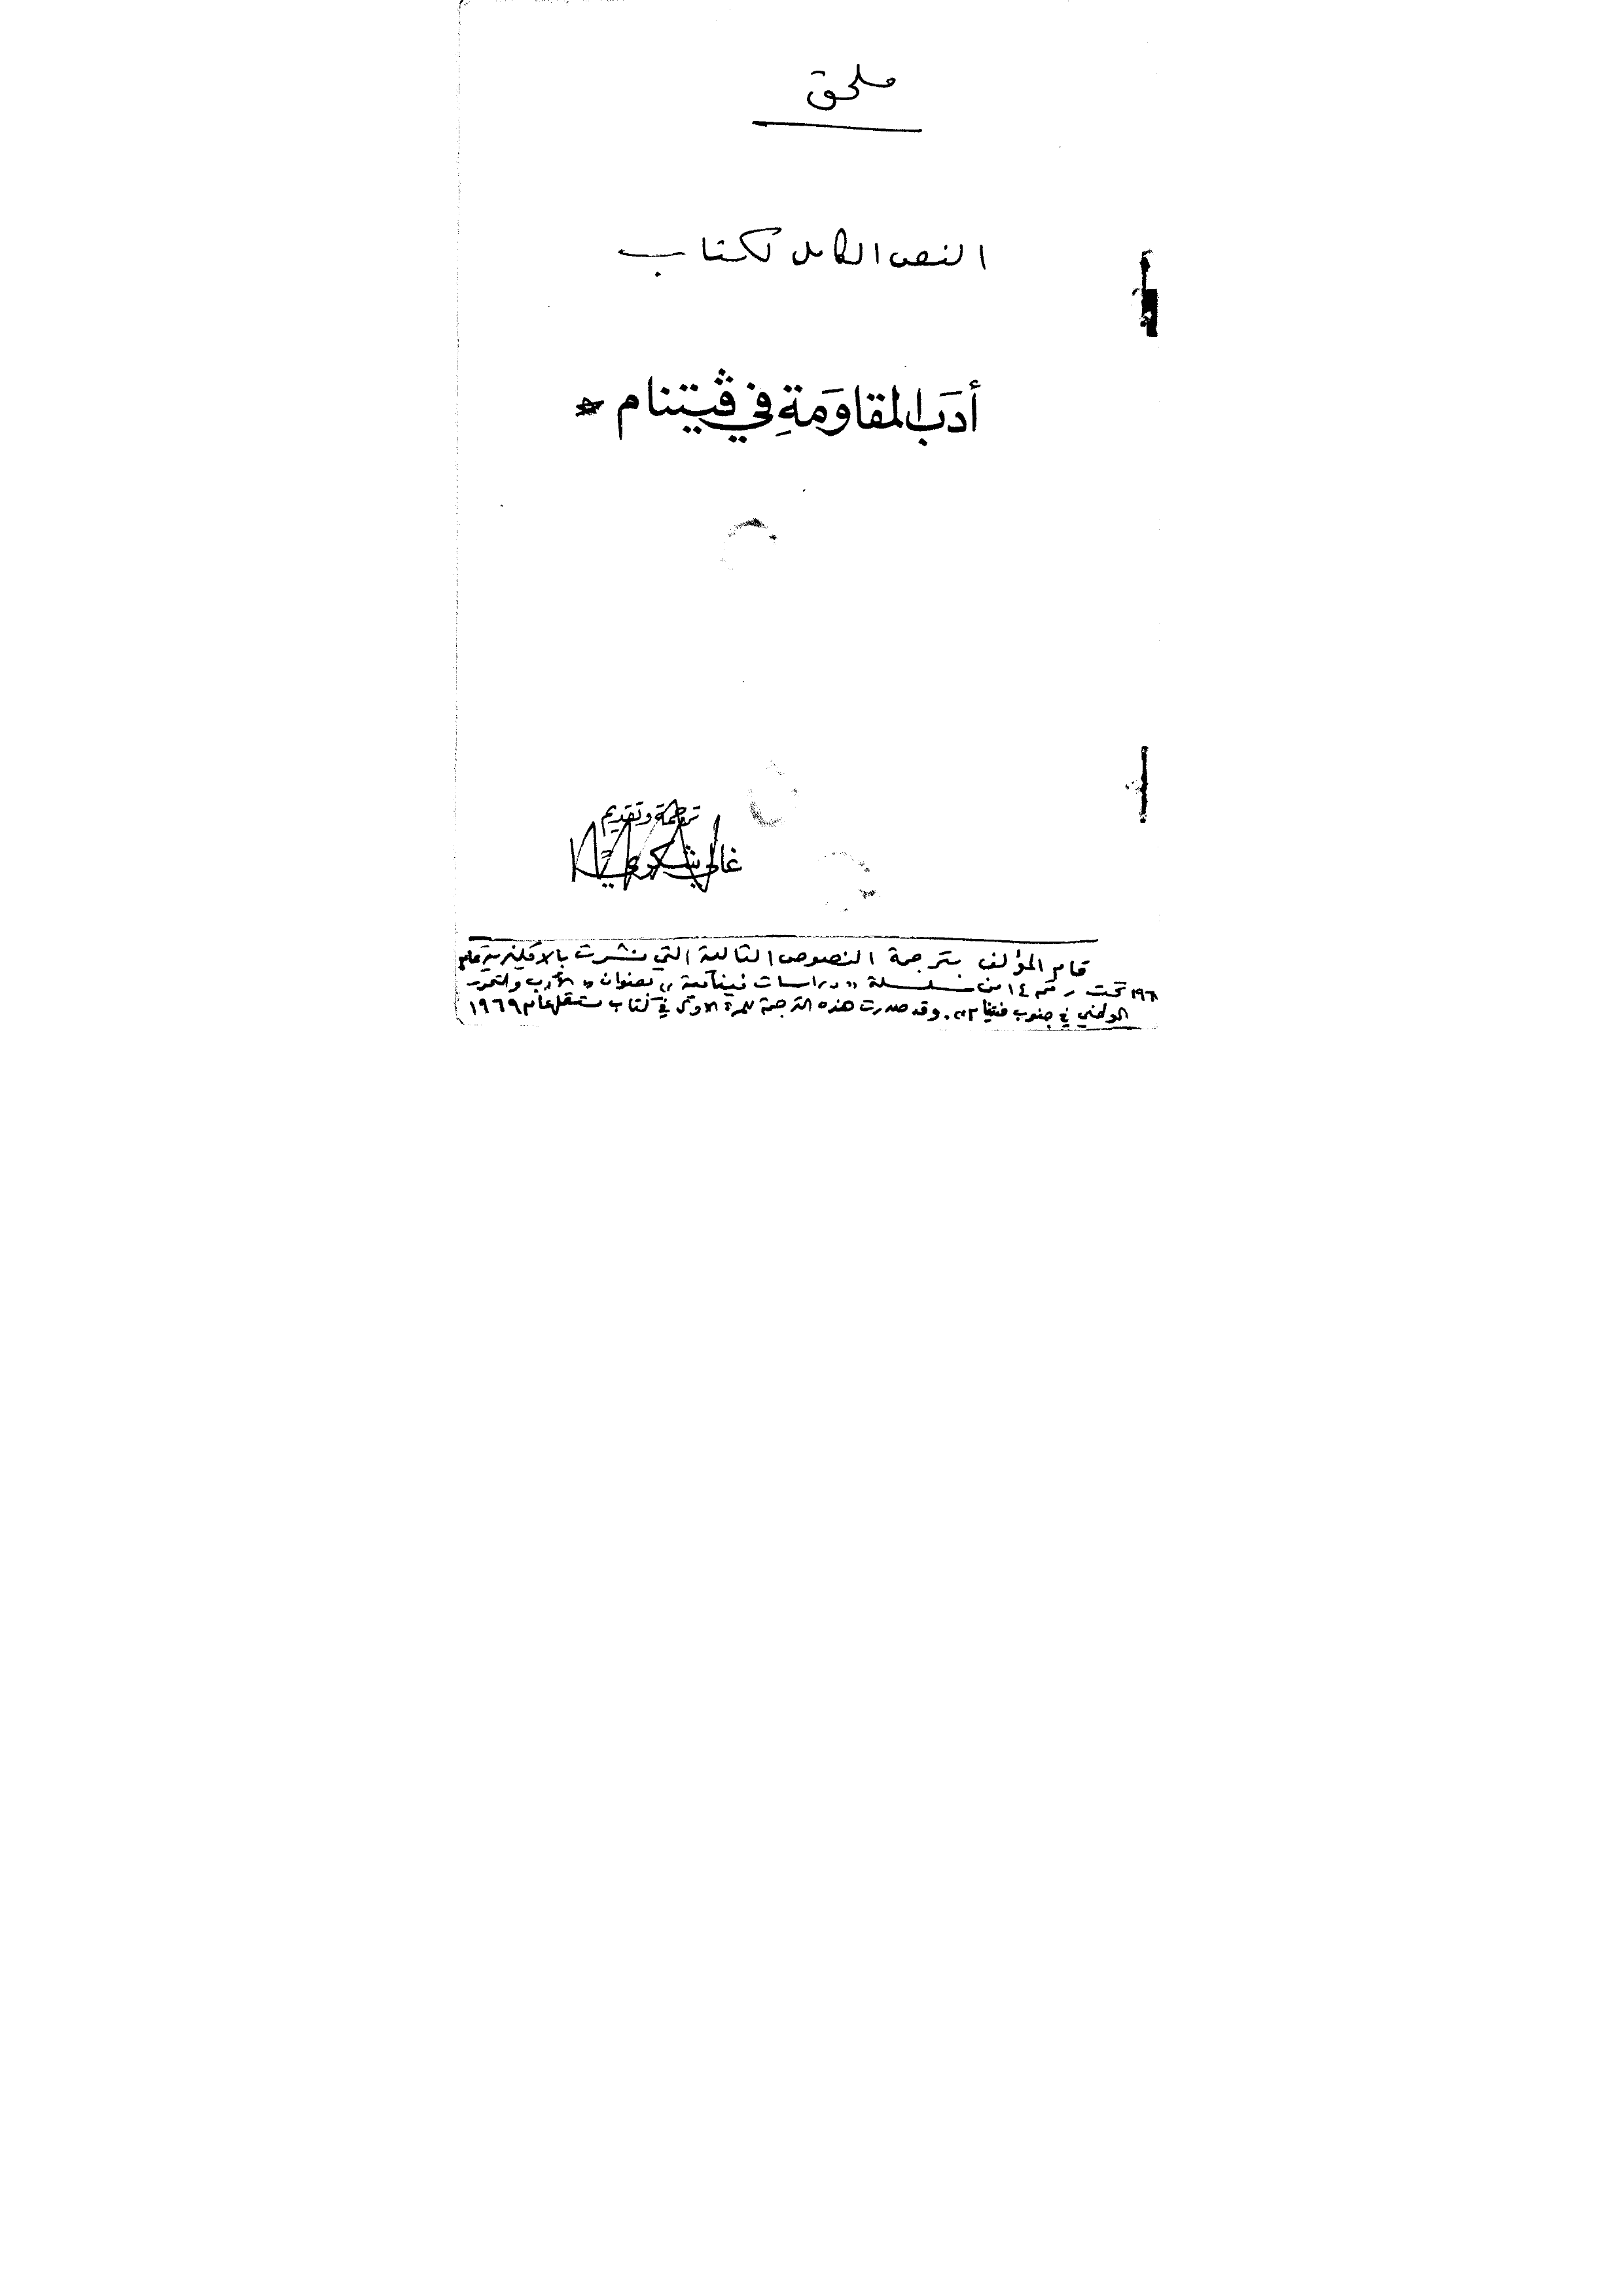 ملحق
النص الكامل لكتاب
أدَب المقاوَمةِ في ڤيتنام *
ترجمة وتقديم
غالي شكري
قام المؤلف بترجمة النصوص التالية التي نشرت بالانكليزية عام
تحت رقم ١٤ من سلسلة «دراسات فيتنامية» بعنوان «الأدب والتحرر
الوطني في جنوب فيتنام». وقد صدرت هذه الترجمة للمرة الاولى في كتاب مستقل عام ١٩٦٩